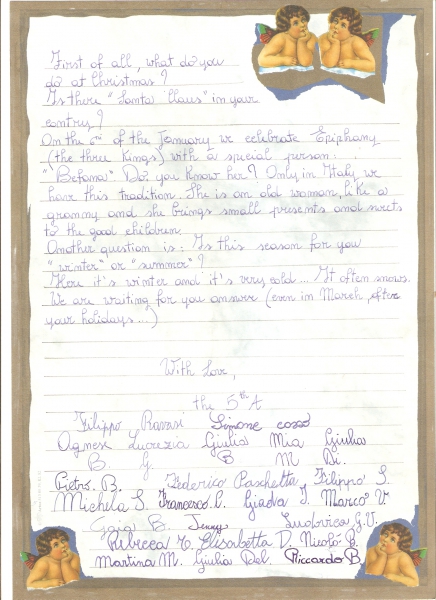 First of all, what do you
do at Christmas?
Is there "Santa Claus" in your
contry?
On the 6th of the January we celebrate Epiphany
(the thre Kings) with a special person...
"Befana" Do you know her? Only in Italy we
have this tradition. She is an old woman, like a
granny and she brings small presents and sweets
to the good children.
Another question is: Is this season for you
"winter" or "summer"?
Here it's winter and it's very cold... It often snows.
We are waiting for you answer (even in March, after
your holidays...)
With Love,
the 5th A
Filippo Ravasi Simone
Agnese Lucrezia Giulia Mia Giulia
B. G. B M Di.
Pietro B. Federico Paschetta Filippo S.
Michela S. Francesco C. Giada I. Marco V.
Gaia B. Jenny Ludovica G.V.
Rebecca Elisabetta D. Nicolò B.
Martina M. Giulia Del. Riccardo B.